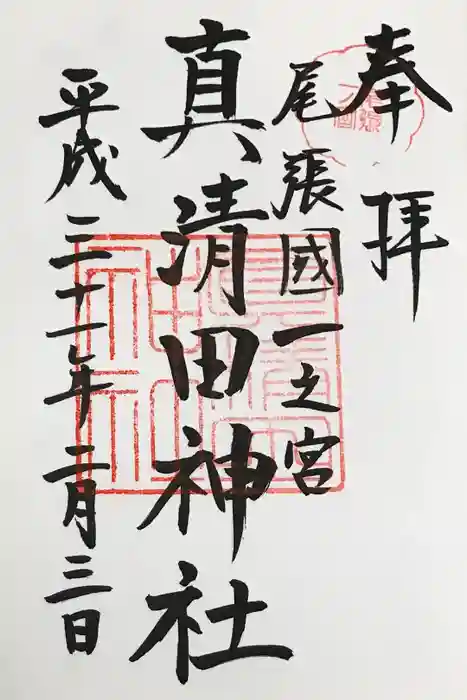 奉拝
尾張國一之宮
真清田神社
平成三十一年二月三日